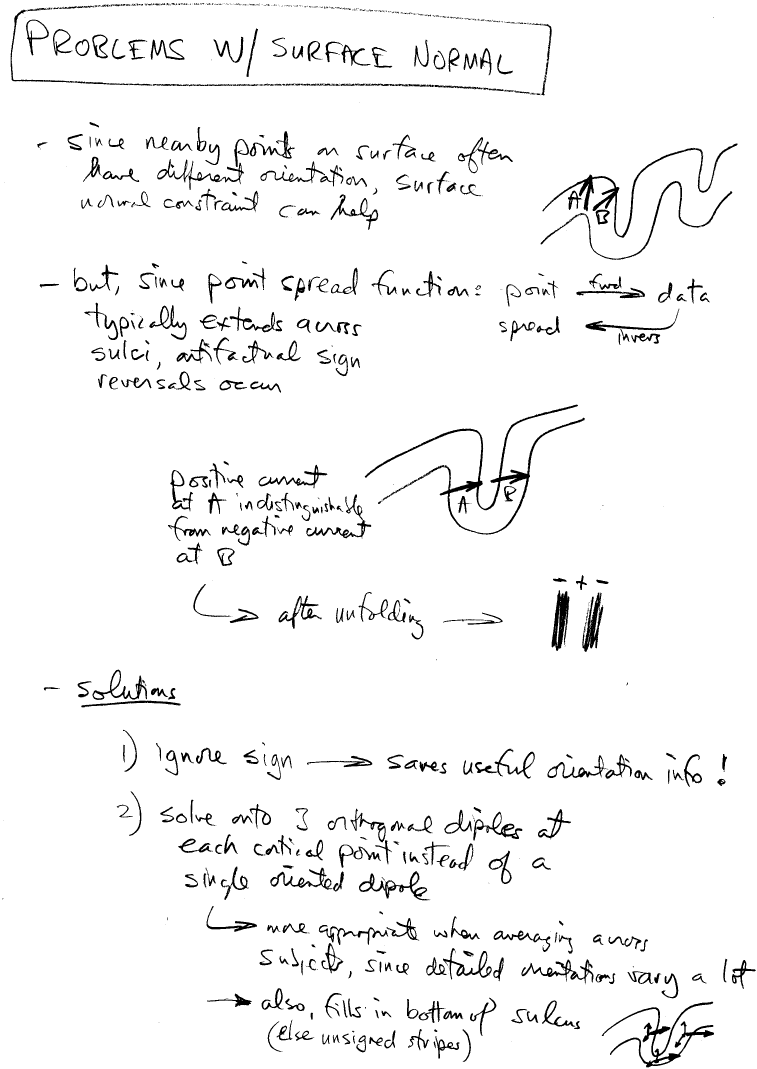 PROBLEMS W/ SURFACE NORMAL
- since nearby points on surface often
have different orientation, surface
normal constraint can help
A
B
- but, since point spread function: point fwd data
typically extends across spread invers
sulci, artifactual sign
reversals occur
positive current
at A indistinguishable
from negative current
at B
A B
after unfolding
- + -
- solutions
1) ignore sign → saves useful orientation info!
2) solve onto 3 orthogonal dipoles at
each cortical point instead of a
single oriented dipole
more appropriate when averaging across
subjects, since detailed orientations vary a lot
also, fills in bottom of sulcus
(else unsigned stripes)